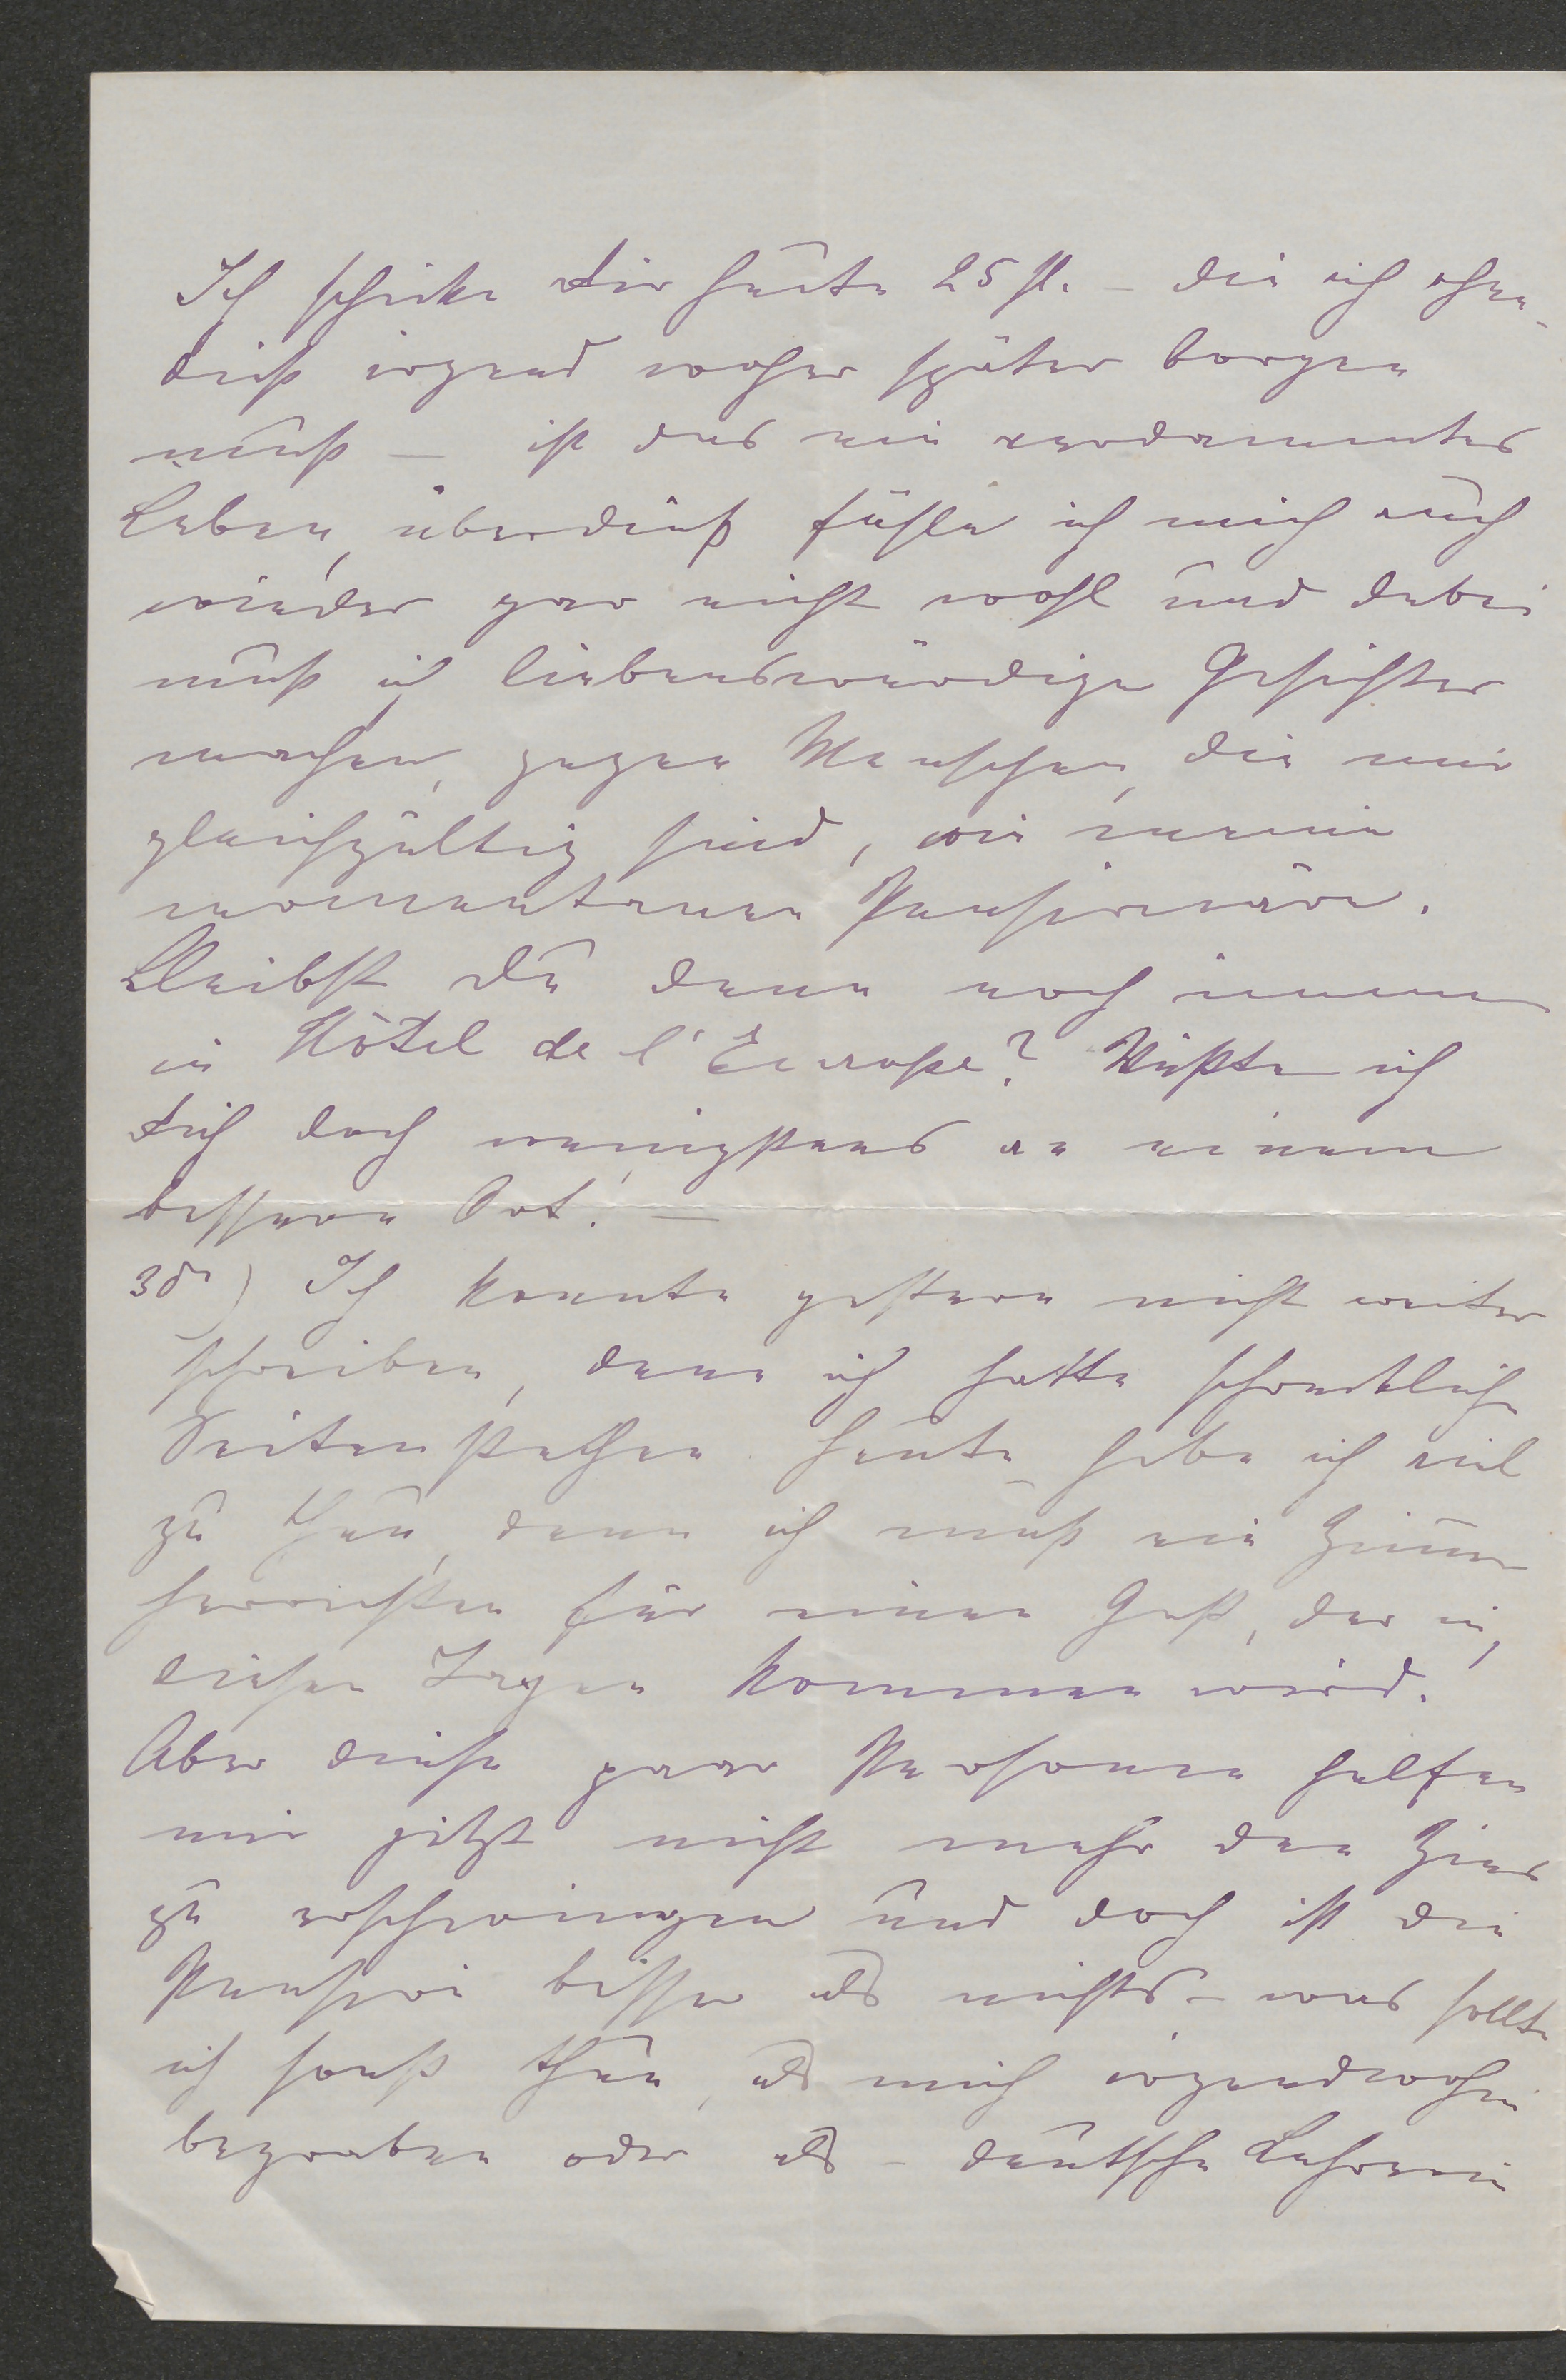 Ich schicke Dir heute 25 fl. – die ich ohne-
dieß irgend woher später borgen
muß – ist das ein verdammtes
Leben, überdieß fühle ich mich auch
wieder gar nicht wohl und dabei
muß ich liebenswürdige Gesichter
machen, gegen Menschen, die mir
gleichgültig sind, wie meine
momentanen Pensionäre.
Bleibst Du denn noch immer
in Hôtel de l'Europe? Wüßte ich
Dich doch wenigstens an einem
bessern Ort! –
3dn) Ich konnte gestern nicht weiter
schreiben, denn ich hatte schreckliche
Seitenstechen. Heute habe ich viel
zu thun, denn ich muß ein Zimmer
herrichten für einen Gast, der in
diesen Tagen kommen wird.
Aber diese paar Personen helfen
mir jetzt nicht mehr den Zins
zu erschwingen und doch ist die
Pension besser als nichts – was sollte
ich sonst thun, als mich irgendwohin
begraben oder als – deutsche Lehrerin